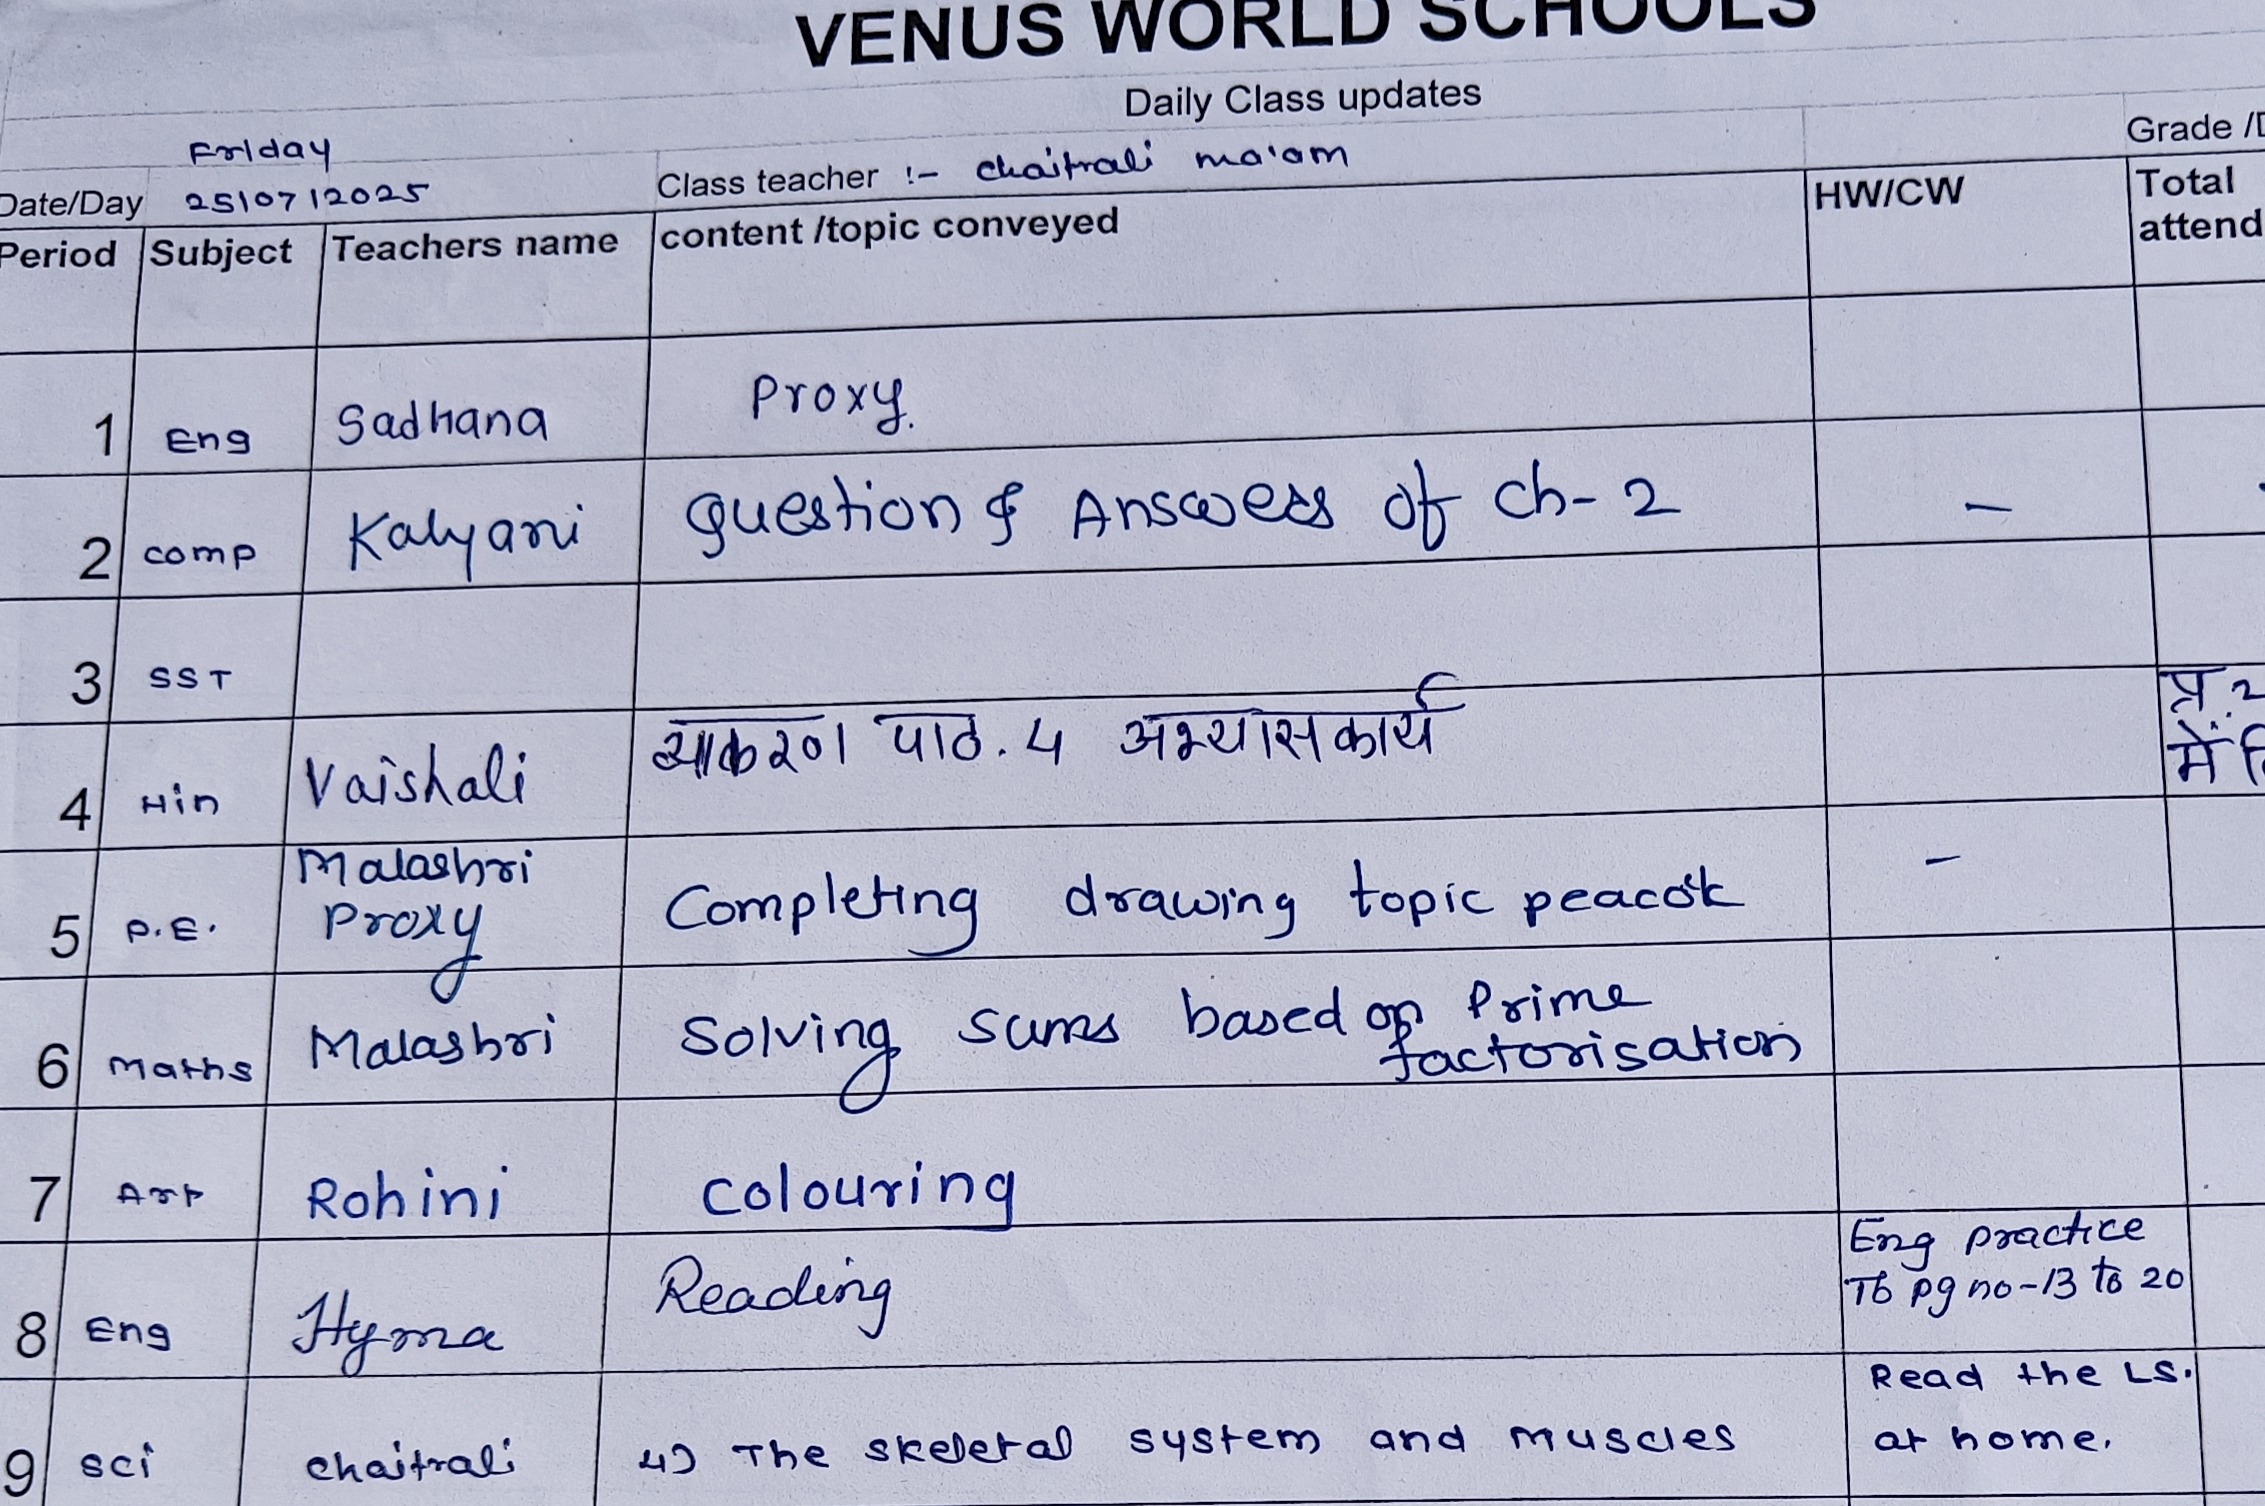 VENUS WORLD SCHOOLS
Daily Class updates
Friday
Date/Day 25/07/2025 Class teacher :- chaitrali ma'am Grade /D
Period Subject Teachers name content /topic conveyed HW/CW Total
attend
1 Eng Sadhana Proxy.
2 comp Kalyani Question & Answers of Ch-2 -
3 SST
4 Hin Vaishali व्याकरण पाठ. 4 अभ्यासकार्य प्र.2
में
5 P.E. Malashri Completing drawing topic peacock -
Proxy
6 Maths Malashri Solving sums based on Prime
factorisation
7 Art Rohini Colouring
8 Eng Hyma Reading Eng practice
Tb pg no-13 to 20
9 sci chaitrali 4) The skeletal system and muscles Read the LS.
at home.